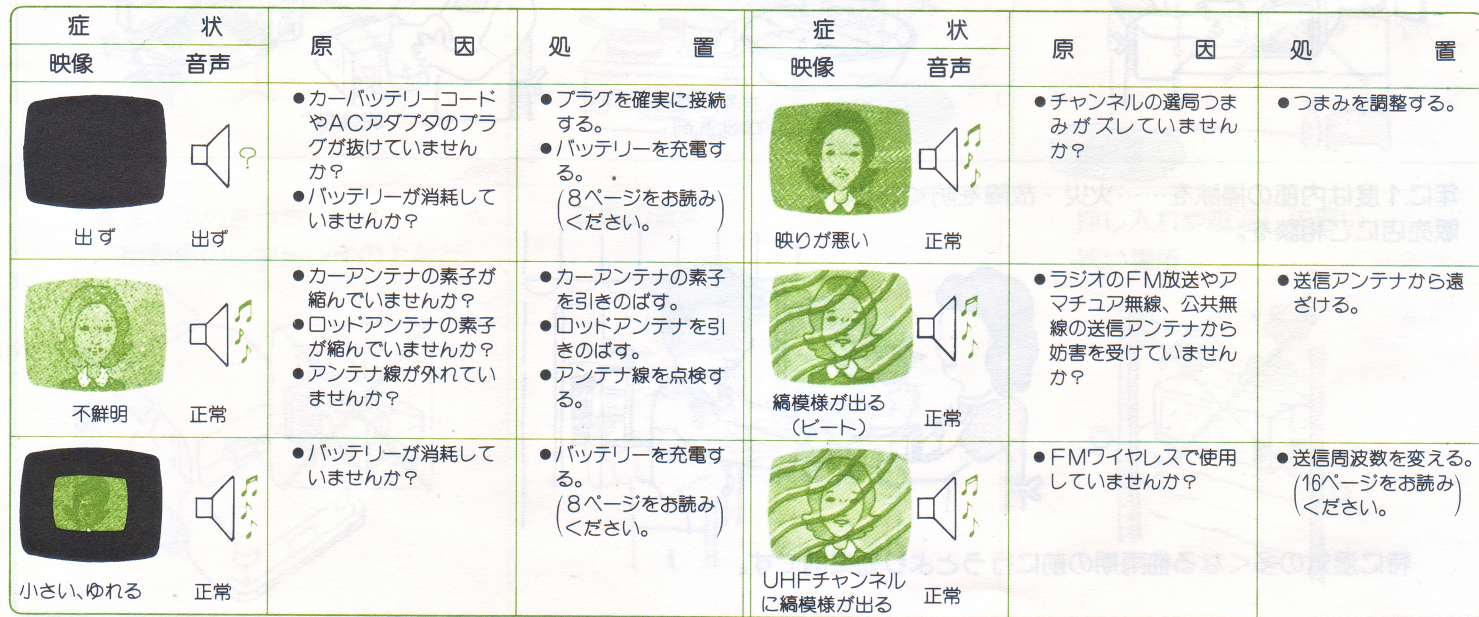 症 状
映像 音声
原 因
処 置
出ず
出ず
●カーバッテリーコード
やACアダプタのプラ
グが抜けていません
か？
●バッテリーが消耗して
いませんか？
●プラグを確実に接続
する。
●バッテリーを充電す
る。
(8ページをお読み
ください。)
不鮮明
正常
●カーアンテナの素子が
縮んでいませんか？
●ロッドアンテナの素子
が縮んでいませんか？
●アンテナ線が外れてい
ませんか？
●カーアンテナの素子
を引きのばす。
●ロッドアンテナを引
きのばす。
●アンテナ線を点検す
る。
小さい、ゆれる
正常
●バッテリーが消耗して
いませんか？
●バッテリーを充電す
る。
(8ページをお読み
ください。)
症 状
映像 音声
原 因
処 置
映りが悪い
正常
●チャンネルの選局つま
みがズレていません
か？
●つまみを調整する。
縞模様が出る
(ビート)
正常
●ラジオのFM放送やア
マチュア無線、公共無
線の送信アンテナから
妨害を受けていません
か？
●送信アンテナから遠
ざける。
UHFチャンネル
に縞模様が出る
正常
●FMワイヤレスで使用
していませんか？
●送信周波数を変える。
(16ページをお読み
ください。)